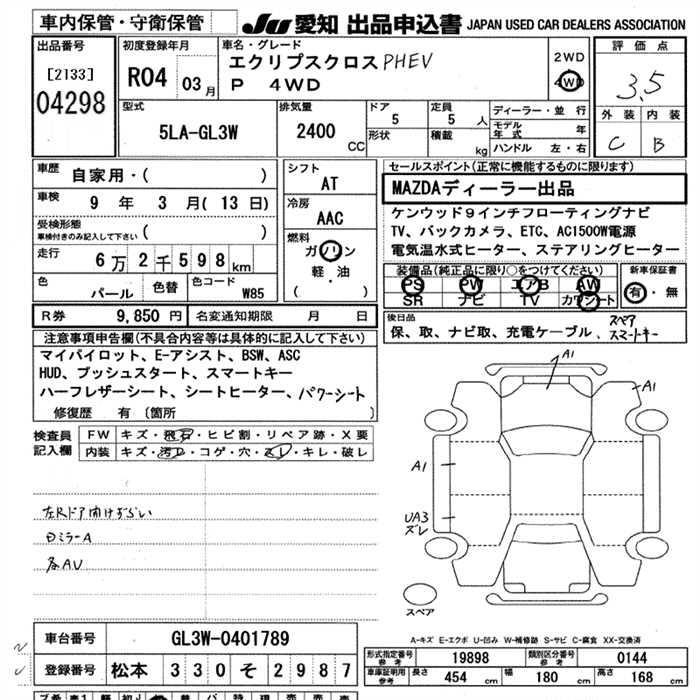 車内保管・守衛保管
JU 愛知 出品申込書 JAPAN USED CAR DEALERS ASSOCIATION
出品番号
[2133]
04298
初度登録年月
R04 03月
車名・グレード
エクリプスクロスPHEV
P 4WD
2WD
4WD
評価点
3.5
外装 内装
C B
型式
5LA-GL3W
排気量
2400
CC
ドア
5
形状
定員
5 人
積載
kg
ディーラー・並行
モデル年式 年
ハンドル 左・右
車歴
自家用・( )
車検
9 年 3 月(13日)
受検形態
車検付きのみ記入して下さい ( )
走行
6万2千598km
色
パール
色替
色コード
W85
シフト
AT
冷房
AAC
燃料
ガソリン
軽・油
( )
R券 9,850円 名変通知期限 月 日
セールスポイント(正常に機能するものに限ります)
MAZDAディーラー出品
ケンウッド9インチフローティングナビ
TV、バックカメラ、ETC、AC1500W電源
電気温水式ヒーター、ステアリングヒーター
装備品(純正品に限り○をつけてください)
PS PW エアB AW
SR ナビ TV カワシート
新車保証書
有・無
後日品
保、取、ナビ取、充電ケーブル、スペアスマートキー
注意事項申告欄(不具合内容等は具体的に記入して下さい)
マイパイロット、E-アシスト、BSW、ASC
HUD、プッシュスタート、スマートキー
ハーフレザーシート、シートヒーター、パワーシート
修復歴 有 〔箇所 〕
検査員記入欄
FW キズ・飛石・ヒビ割・リペア跡・X要
内装 キズ・汚レ・コゲ・穴・スレ・キレ・破レ
左Rドア開けずらい
ミラーA
各AU
A1
A1
A1
UA3
ズレ
スペア
A-キズ E-エクボ U-凹み W-補修跡 S-サビ C-腐食 XX-交換済
車台番号 GL3W-0401789
登録番号 松本 330 そ 2987
形式指定番号 参考 19898
類別区分番号 参考 0144
車庫証明用 参考 長さ 454 cm 幅 180 cm 高さ 168 cm